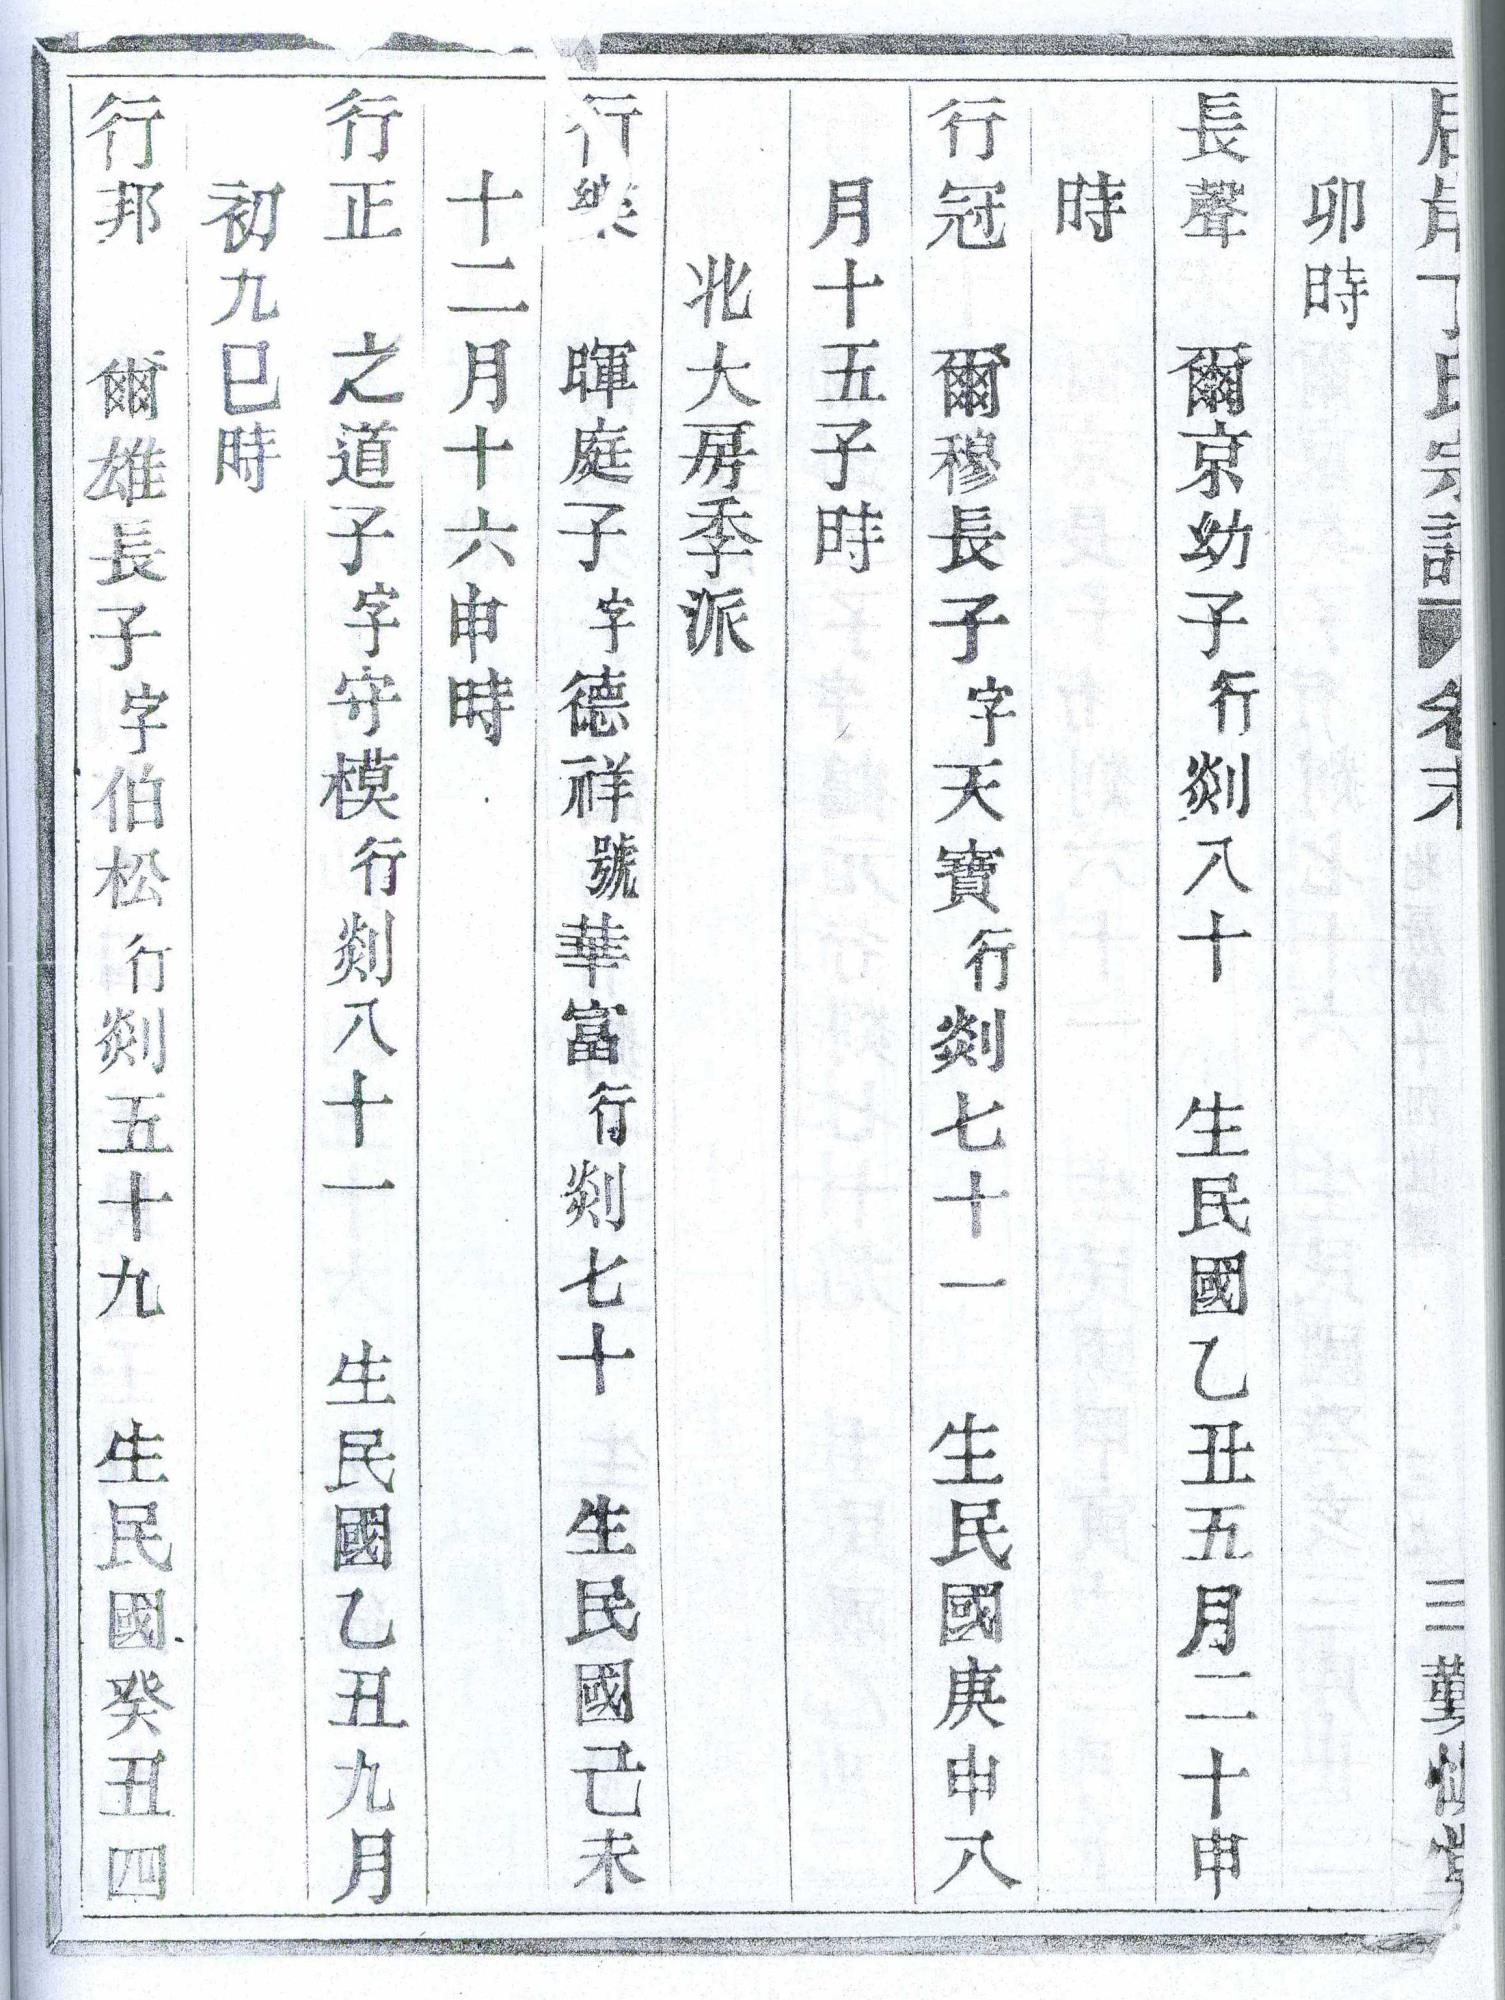 丁氏宗譜 卷末 三
卯時
長聲 爾京幼子行剡八十 生民國乙丑五月二十申
時
行冠 爾穆長子字天寶行剡七十一 生民國庚申八
月十五子時
北大房季派
行樂 暉庭子字德祥號華富行剡七十 生民國己未
十二月十六申時
行正 之道子字守模行剡八十一 生民國乙丑九月
初九巳時
行邦 爾雄長子字伯松行剡五十九 生民國癸丑四